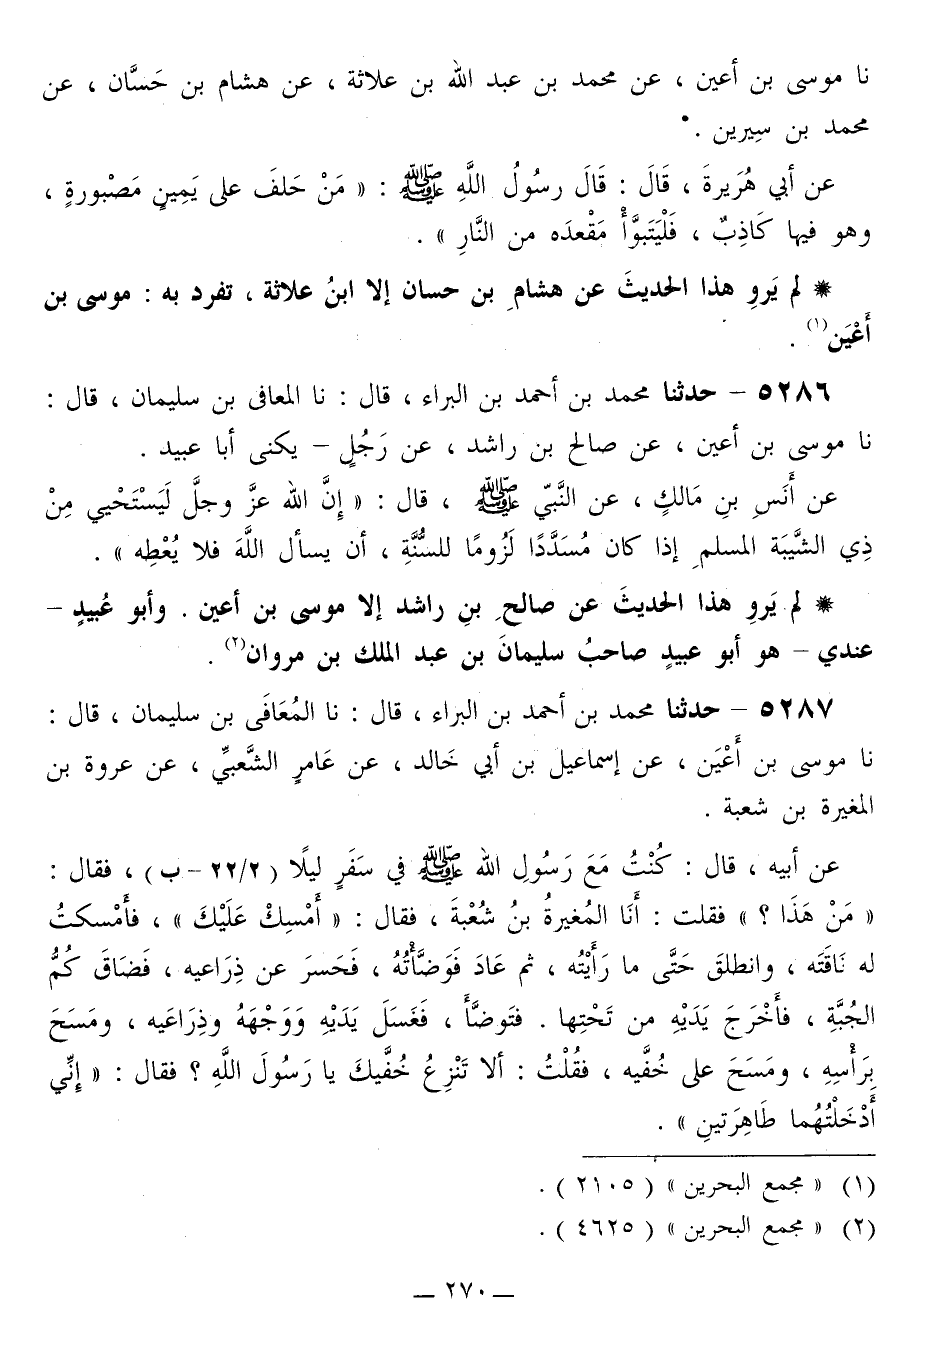 نا موسى بن أعين ، عن محمد بن عبد الله بن علاثة ، عن هشام بن حَسَّان ، عن
محمد بن سِيرين .
عن أبي هُرَيرةَ ، قَالَ : قَالَ رسُولُ اللَّهِ ﷺ : « مَنْ حَلفَ على يَمِينٍ مَصْبُورةٍ ،
وهو فيها كَاذِبٌ ، فَلْيَتَبوَّأْ مَقْعدَه من النَّارِ » .
* لم يَروِ هذا الحديثَ عن هشامِ بن حسان إلا ابنُ علاثة ، تفرد به : موسى بن
أَعْيَن(١) .
٥٢٨٦ – حدثنا محمد بن أحمد بن البراء ، قال : نا المعافى بن سليمان ، قال :
نا موسى بن أعين ، عن صالح بن راشد ، عن رَجُلٍ – يكنى أبا عبيد .
عن أَنَسِ بنِ مَالكٍ ، عن النَّبيِّ ﷺ ، قال : « إِنَّ الله عزَّ وجلَّ لَيَسْتَحْيي مِنْ
ذِي الشَّيبَة المسلمِ إذا كان مُسَدَّدًا لَزُومًا للسُّنَّةِ ، أن يسأل اللَّهَ فلا يُعْطِه » .
* لم يَروِ هذا الحديثَ عن صالحِ بنِ راشد إلا موسى بن أعين . وأبو عُبيدٍ –
عندي – هو أبو عبيدٍ صاحبُ سليمانَ بن عبد الملك بن مروان(٢) .
٥٢٨٧ – حدثنا محمد بن أحمد بن البراء ، قال : نا المُعَافَى بن سليمان ، قال :
نا موسى بن أَعْيَن ، عن إسماعيل بن أبي خَالد ، عن عَامرٍ الشَّعبيِّ ، عن عروة بن
المغيرة بن شعبة .
عن أبيه ، قال : كُنْتُ مَعَ رَسُولِ الله ﷺ في سَفَرٍ ليلًا ( ٢٢/٢ – ب ) ، فقال :
« مَنْ هَذَا ؟ » فقلت : أَنَا المُغيرةُ بنُ شُعْبةَ ، فقال : « أَمْسِكْ عَلَيْكَ » ، فأَمْسكتُ
له نَاقَتَه ، وانطلقَ حَتَّى ما رَأَيْتُه ، ثم عَادَ فَوَضَّأْتُهُ ، فَحَسرَ عن ذِرَاعيه ، فَضَاقَ كُمُّ
الجُبَّةِ ، فأَخْرَجَ يَدَيْهِ من تَحْتِها . فتَوضَّأَ ، فَغَسَلَ يَدَيْهِ وَوَجْهَهُ وذِرَاعَيه ، ومَسَحَ
بِرَأْسِهِ ، ومَسَحَ على خُفَّيه ، فقُلْتُ : ألا تَنْزِعُ خُفَّيكَ يا رَسُولَ اللَّهِ ؟ فقال : « إِنِّي
أَدْخَلْتُهُما طَاهِرَتينِ » .
(١) « مجمع البحرين » ( ٢١٠٥ ) .
(٢) « مجمع البحرين » ( ٤٦٢٥ ) .
— ٢٧٠ —